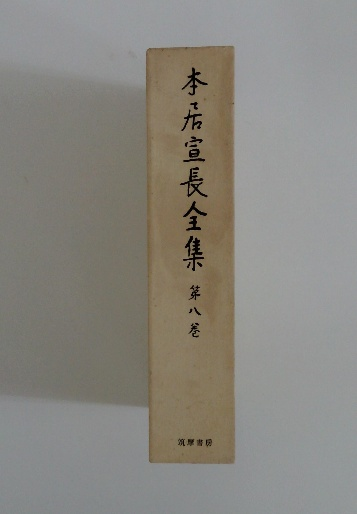 本居宣長全集 第八巻
筑摩書房